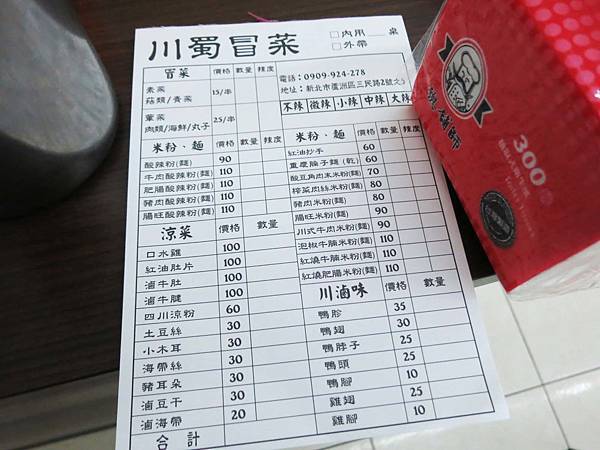 川蜀冒菜
□內用 桌
□外帶
冒菜 價格 數量 辣度
素菜
菇類/青菜 15/串
葷菜
肉類/海鮮/丸子 25/串
電話:0909-924-278
地址:新北市蘆洲區三民路2號之
不辣 微辣 小辣 中辣 大辣
米粉、麵 價格 數量 辣度
酸辣粉(麵) 90
牛肉酸辣粉(麵) 110
肥腸酸辣粉(麵) 110
豬肉酸辣粉(麵) 110
腸旺酸辣粉(麵) 110
涼菜 價格 數量
口水雞 100
紅油肚片 100
滷牛肚 100
滷牛腱 100
四川涼粉 60
土豆絲 30
小木耳 30
海帶絲 30
豬耳朵 30
滷豆干 30
滷海帶 20
合計
米粉、麵 價格 數量 辣度
紅油抄手 60
重慶臊子麵(乾) 60
酸豆角肉末米粉(麵) 70
榨菜肉絲米粉(麵) 80
豬肉米粉(麵) 80
腸旺米粉(麵) 90
川式牛肉米粉(麵) 90
泡椒牛腩米粉(麵) 110
紅燒牛腩米粉(麵) 110
紅燒肥腸米粉(麵) 110
川滷味 價格 數量
鴨胗 35
鴨翅 30
鴨脖子 25
鴨頭 25
鴨腳 10
雞翅 25
雞腳 10
300